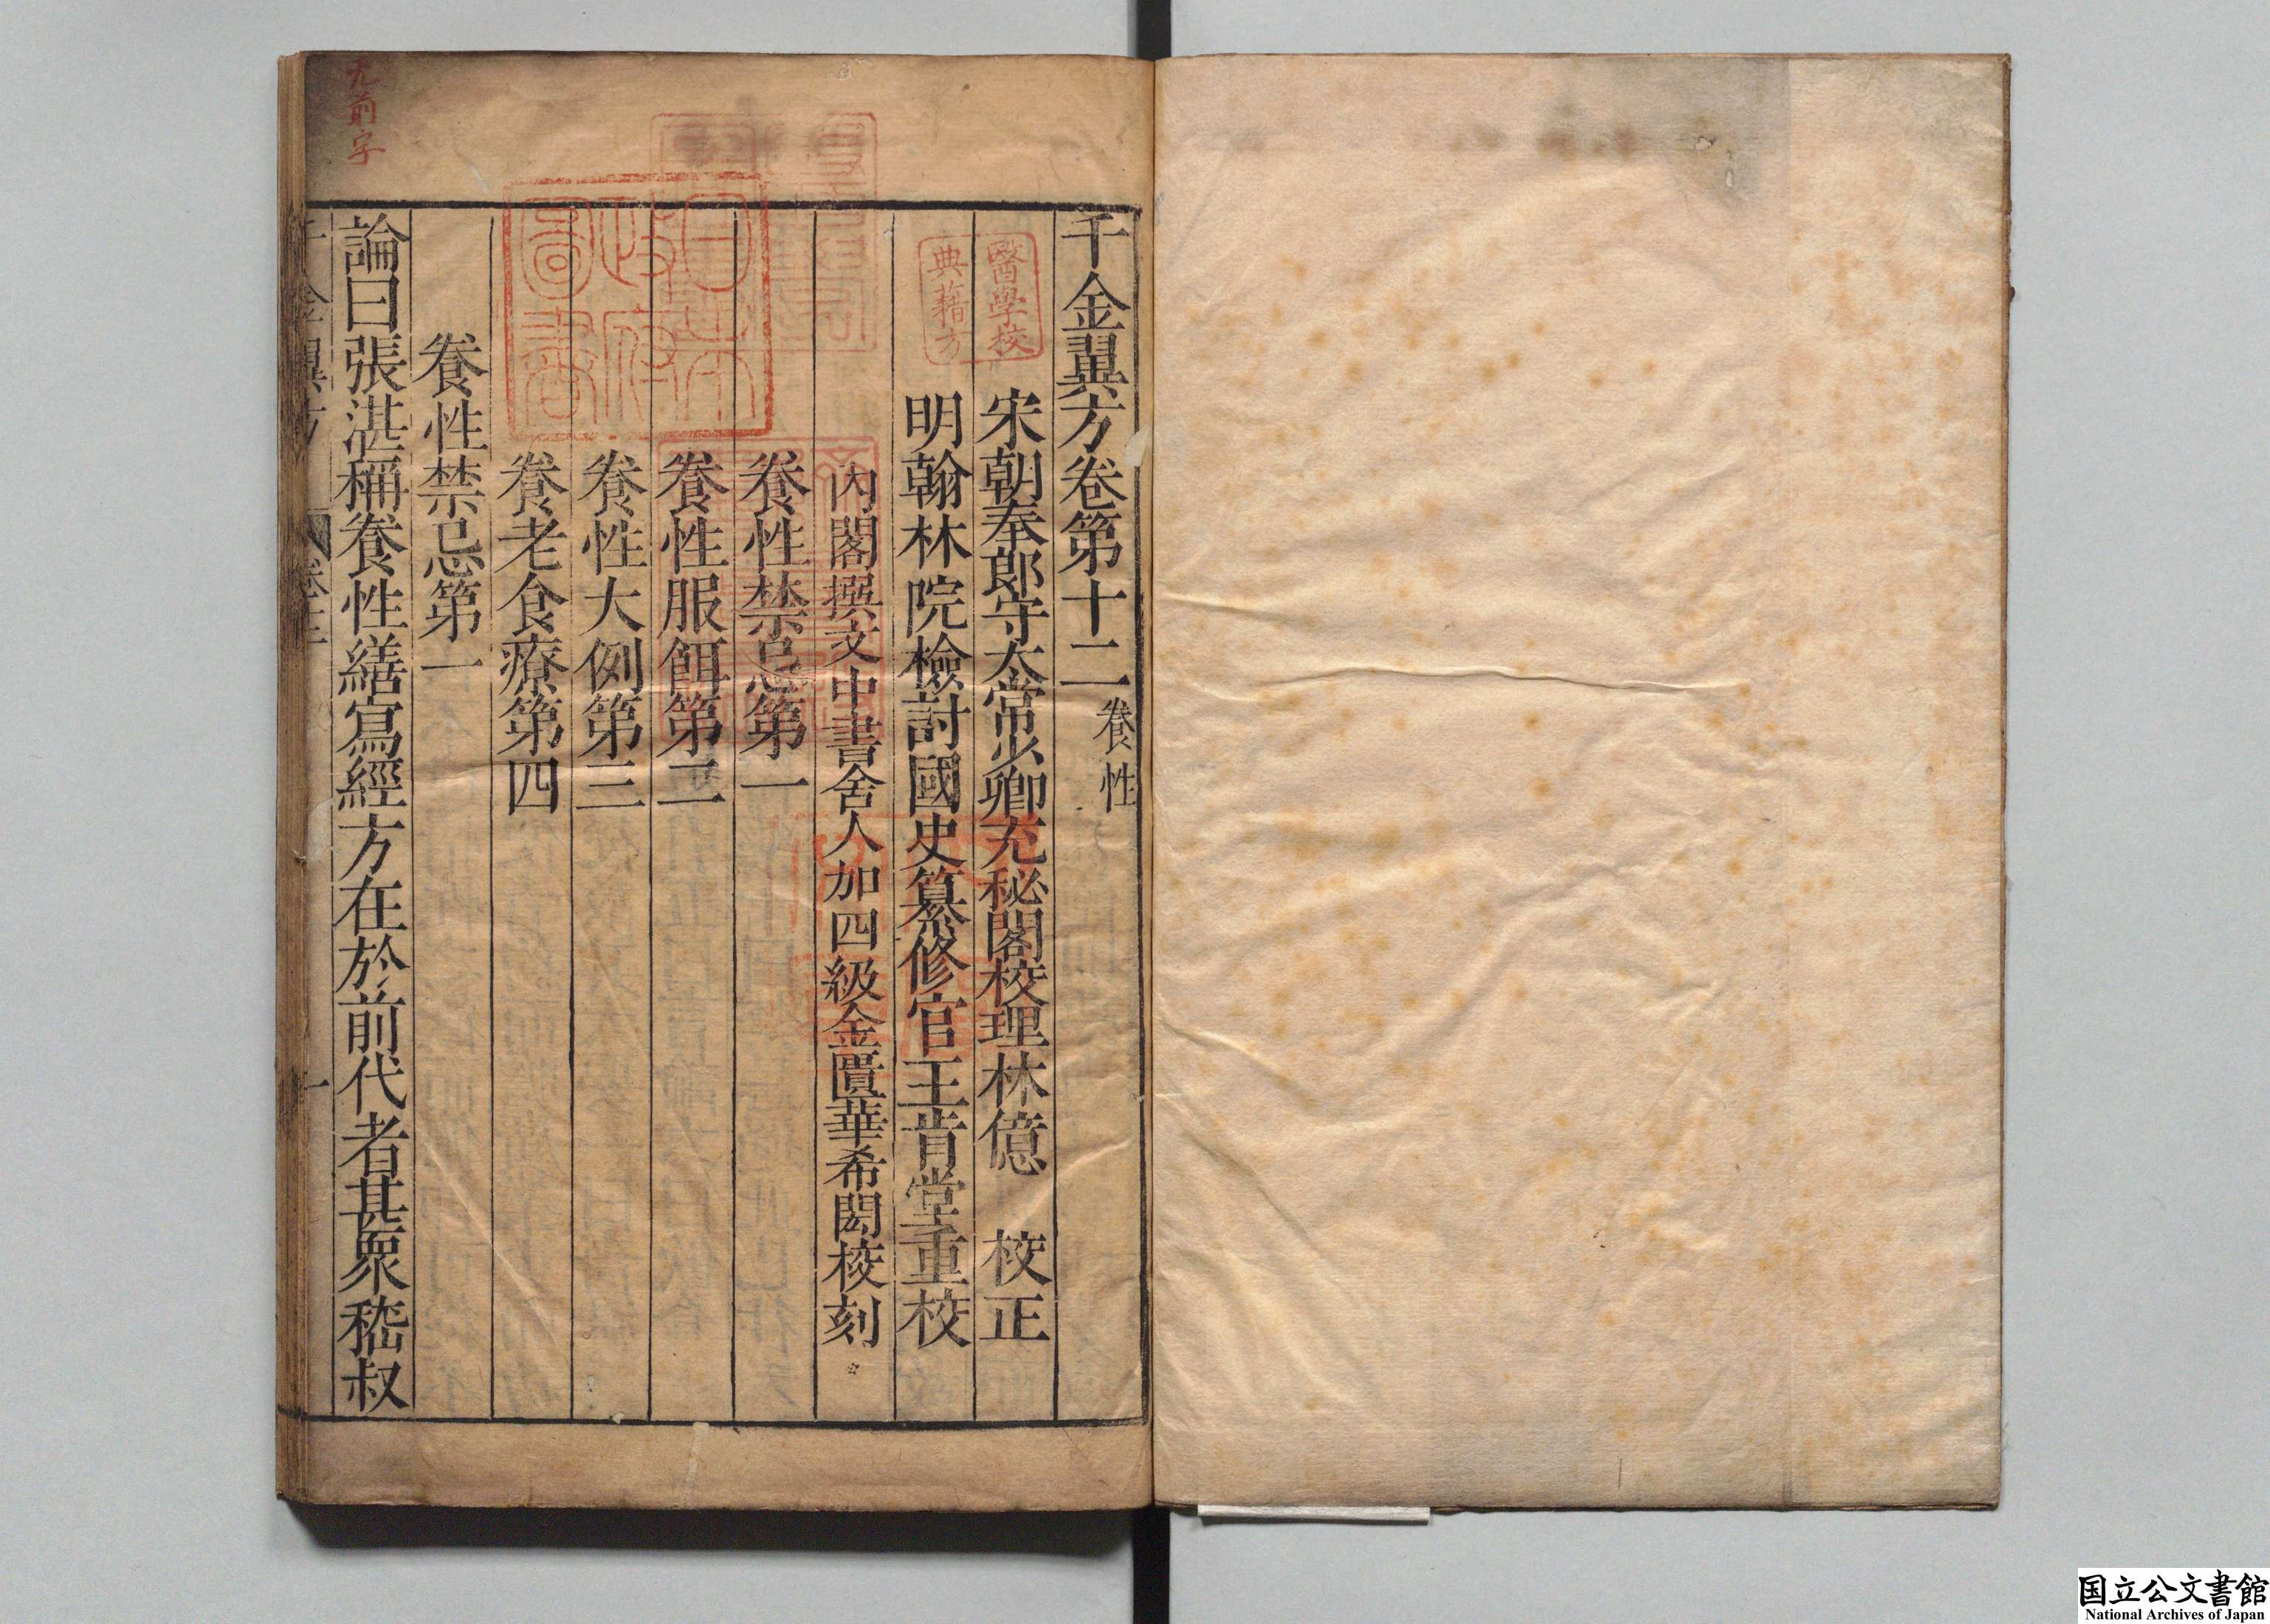 千金翼方卷第十二 養性
宋朝奉郎守太常少卿充秘閣校理林億 校正
明翰林院檢討國史纂修官王肯堂重校
內閣撰文中書舍人加四級金匱華希閎校刻
養性禁忌第一
養性服餌第二
養性大例第三
養老食療第四
養性禁忌第一
論曰張湛稱養性繕寫經方在於前代者甚眾嵇叔
千金翼方 卷十二 一
无前字
醫學校
典藉方
日本
政府
圖書
国立公文書館
National Archives of Japan